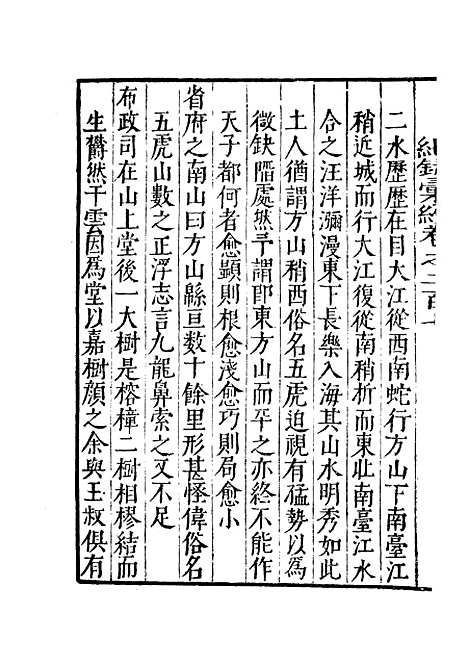 紀錄彙編卷之二百七
二水歷歷在目大江從西南蛇行方山下南臺江
稍近城而行大江復從南稍折而東壯南臺江水
合之汪洋瀰漫東下長樂入海其山水明秀如此
土人猶謂方山稍西俗名五虎迫視有猛勢以爲
微缺陷處然予謂卽東方山而平之亦終不能作
天子都何者愈顯則根愈淺愈巧則局愈小
省府之南山曰方山縣亘数十餘里形甚恠偉俗名
五虎山數之正浮志言九龍鼻索之又不足
布政司在山上堂後一大樹是榕樟二樹相樛結而
生欝然干雲因爲堂以嘉樹顏之余與王叔俱有